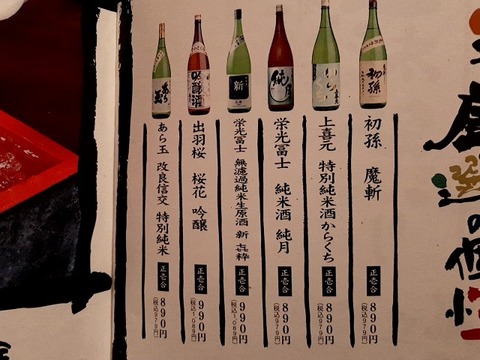 初孫 魔斬 正壱合 890円 (税込979円)
上喜元 特別純米酒からくち 正壱合 890円 (税込979円)
栄光冨士 純米酒 純月 正壱合 890円 (税込979円)
栄光冨士 無濾過純米生原酒 新 㐂粋 正壱合 890円 (税込979円)
出羽桜 桜花 吟醸 正壱合 990円 (税込1,089円)
あら玉 改良信交 特別純米 正壱合 890円 (税込979円)